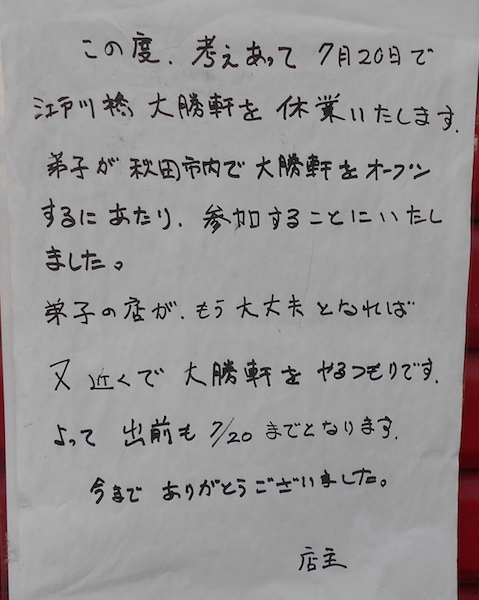 この度、考えあって 7月20日で
江戸川橋 大勝軒を 休業いたします。
弟子が 秋田市内で 大勝軒を オープン
するに あたり、参加することにいたし
ました。
弟子の店が、もう 大丈夫 となれば
又 近くで 大勝軒を やるつもりです。
よって 出前も 7/20 までとなります。
今まで ありがとうございました。
店主